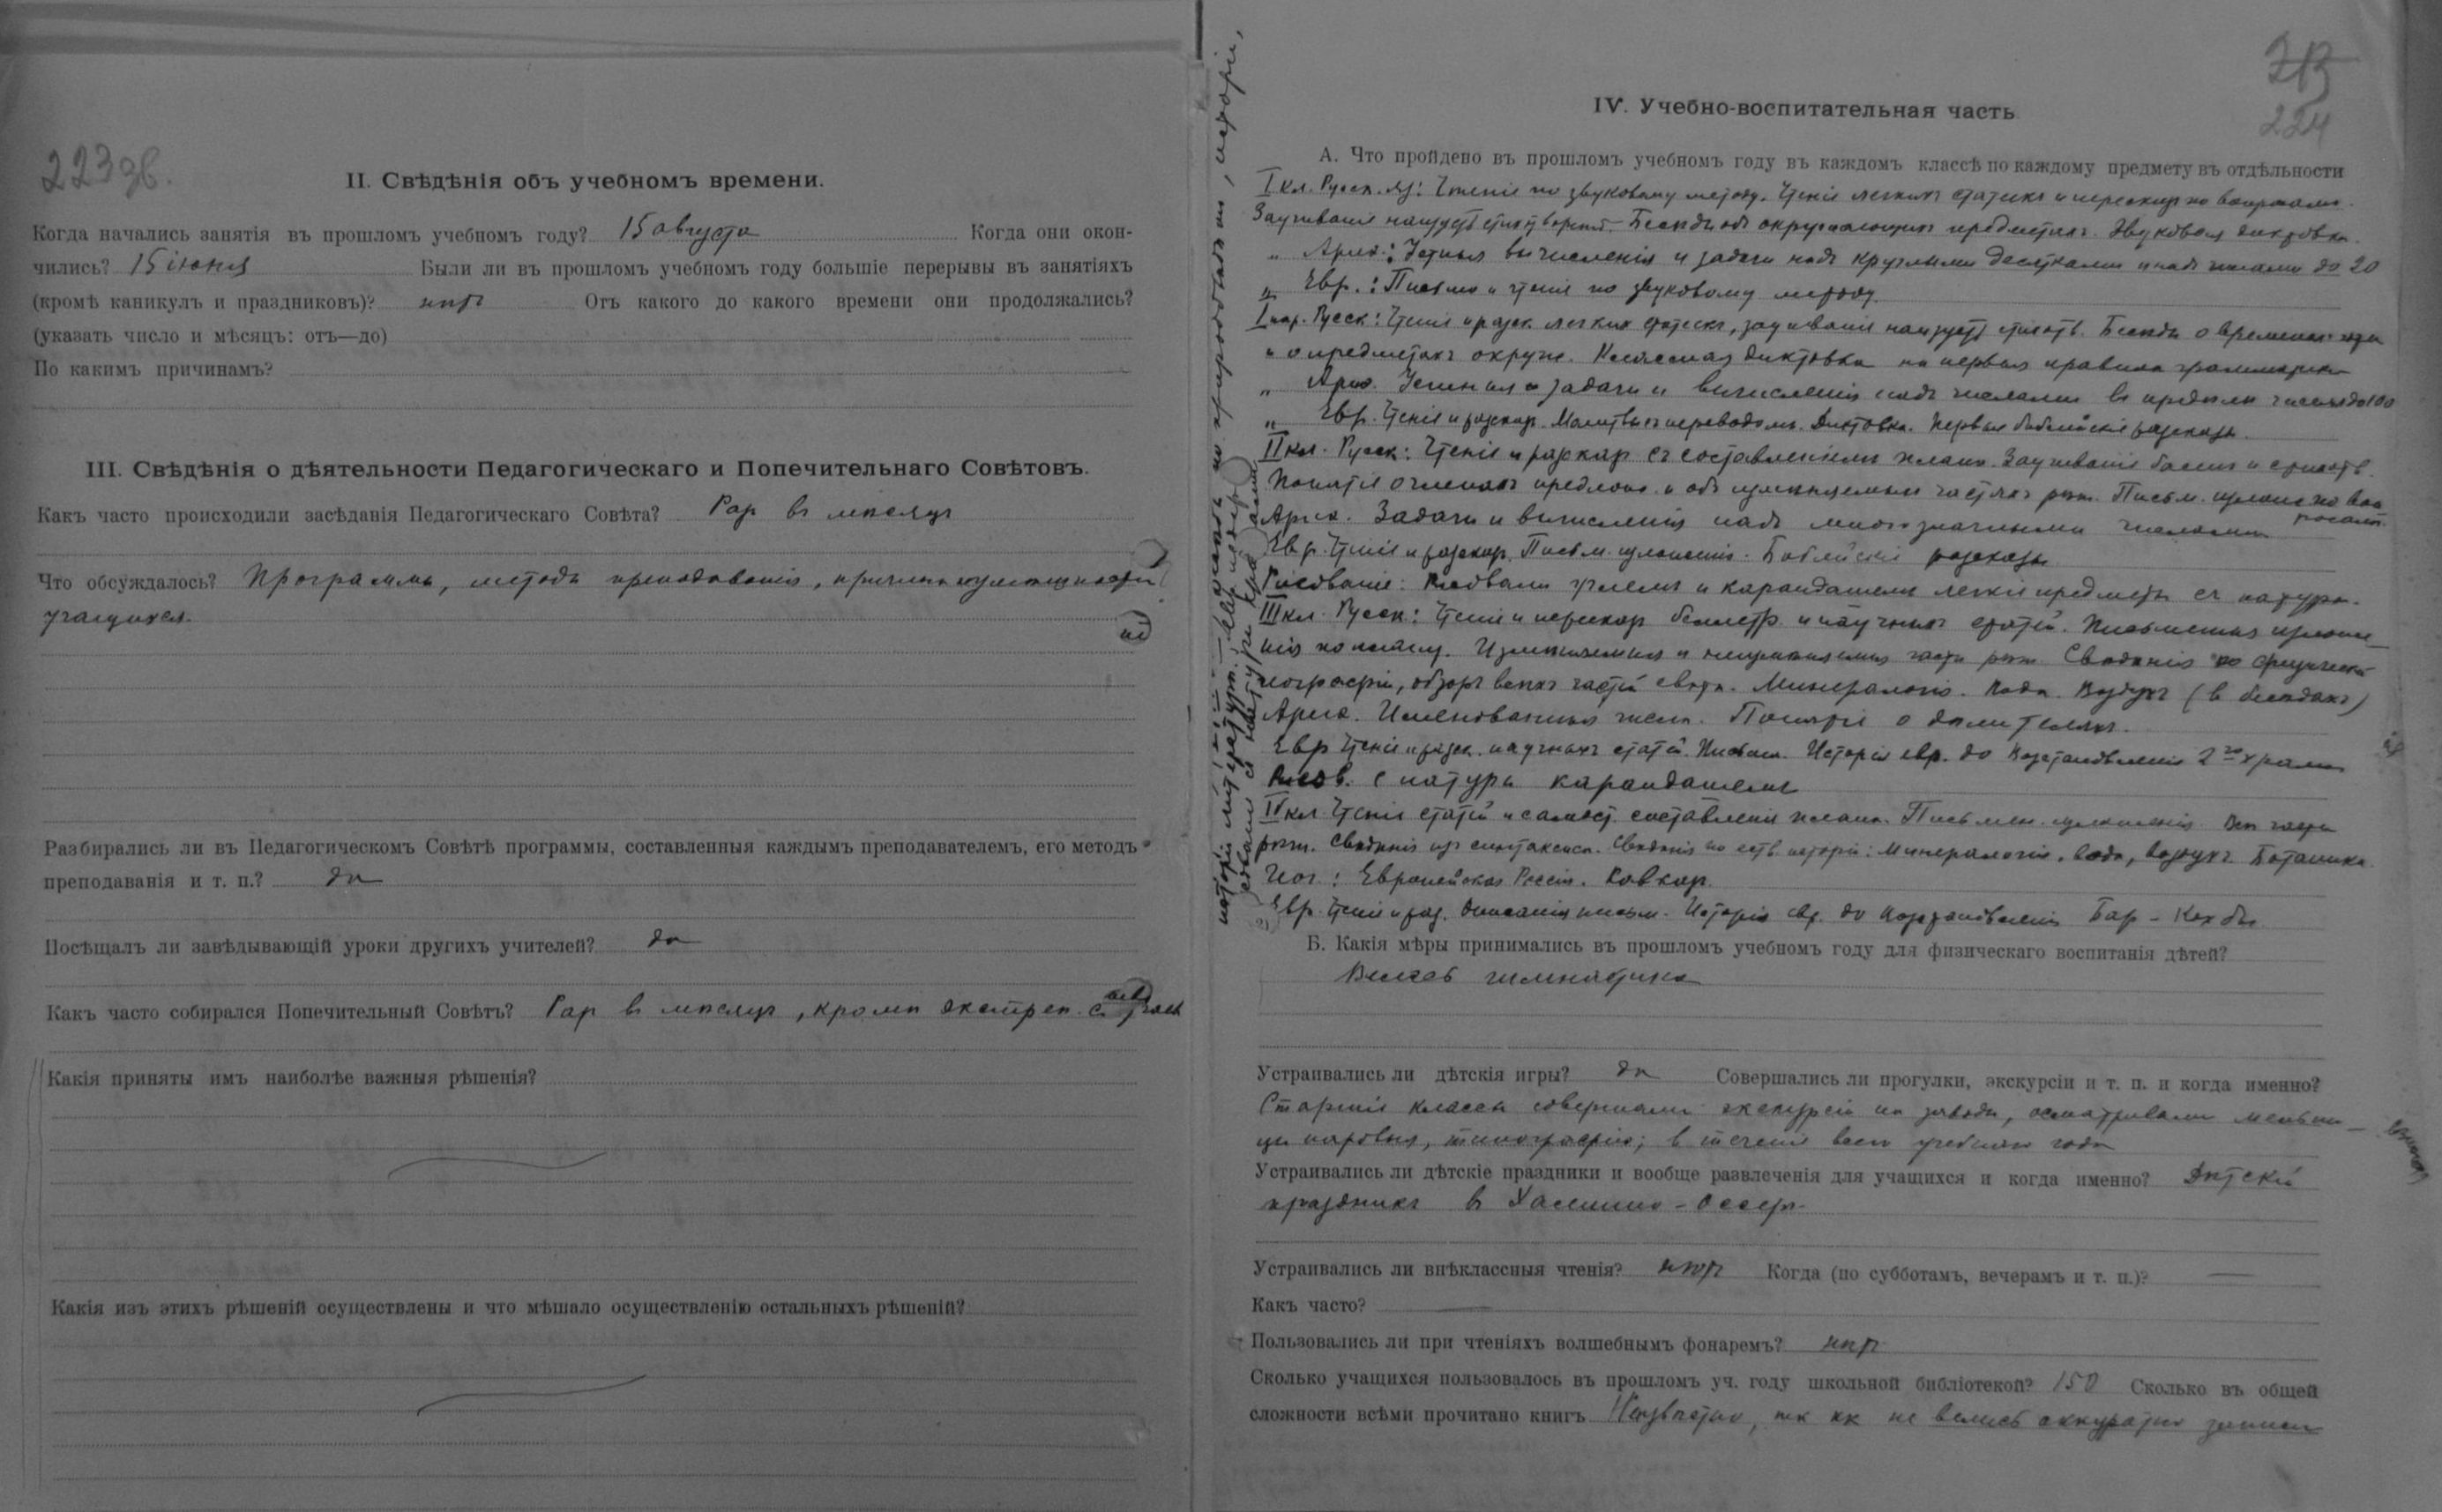 223 об.
II. Свѣдѣнія объ учебномъ времени.
Когда начались занятія въ прошломъ учебномъ году? 15 августа Когда они окон-
чились? 15 іюня Были ли въ прошломъ учебномъ году большіе перерывы въ занятіяхъ
(кромѣ каникулъ и праздниковъ)? нѣтъ Отъ какого до какого времени они продолжались?
(указать число и мѣсяцъ: отъ—до)
По какимъ причинамъ?
III. Свѣдѣнія о дѣятельности Педагогическаго и Попечительнаго Совѣтовъ.
Какъ часто происходили засѣданія Педагогическаго Совѣта? Раз в мѣсяцъ
Что обсуждалось? Программы, методы преподаванія, причины неуспѣшности
учащихся.
Разбирались ли въ Педагогическомъ Совѣтѣ программы, составленныя каждымъ преподавателемъ, его методъ
преподаванія и т. п.? да
Посѣщалъ ли завѣдывающій уроки другихъ учителей? да
Какъ часто собирался Попечительный Совѣтъ? Раз в мѣсяцъ, кромѣ экстрен.
Какія приняты имъ наиболѣе важныя рѣшенія?
Какія изъ этихъ рѣшеній осуществлены и что мѣшало осуществленію остальныхъ рѣшеній?
213
224
IV. Учебно-воспитательная часть
А. Что пройдено въ прошломъ учебномъ году въ каждомъ классѣ по каждому предмету въ отдѣльности
I кл. Русск. яз: Чтеніе по звуковому методу. Чтеніе легкихъ статеекъ и пересказ по вопросамъ.
Заучиваніе наизусть стихотвореній. Бесѣды объ окружающихъ предметахъ. Звуковая диктовка.
„ Ариѳ.: Устныя вычисленія и задачи надъ круглыми десятками и надъ числами до 20
„ Евр.: Письмо и чтеніе по звуковому методу.
I Русск: Чтеніе и разск. легких статеекъ, заучиваніе наизусть стихотв. Бесѣды о временахъ года
„ о предметахъ окруж. Классная диктовка на первыя правила грамматики
„ Ариѳ. задачи и вычисленія надъ числами в предѣлѣ до 100
„ Евр. Чтеніе и разсказ. Молитвы с переводомъ. Диктовка. Первые библейскіе разсказы.
II кл. Русск: Чтеніе и разсказ съ составленіемъ плана. Заучиваніе басенъ и стихотв.
Понятіе о членахъ предлож. и объ измѣняемыхъ частяхъ рѣчи. Письм. излож. по воп
росамъ.
Ариѳ. Задачи и вычисленія надъ многозначными числами
Евр. Чтеніе и разсказ. Письм. изложенія. Библейскіе разсказы
Рисованіе: Рисовали углемъ и карандашемъ легкіе предметы съ натуры.
III кл. Русск: Чтеніе и пересказ беллетр. и научныхъ статей. Письменныя изложе-
нія по плану. Измѣняемыя и неизмѣняемыя части рѣчи Свѣдѣнія по физической
географіи, обзоръ всѣхъ частей свѣта. Минералогія. Вода. Воздухъ (в бесѣдахъ)
Ариѳ. Именованныя числа. Понятіе о дѣлителяхъ.
Евр Чтеніе и разск. научныхъ статей. Исторія евр. до Возстановленія 2го храма
Рисов. с натуры карандашемъ
IV кл Чтеніе статей и самост. составленія плана. Письмен. изложенія. Всѣ части
рѣчи. Свѣдѣнія изъ синтаксиса. Свѣдѣнія по еств. исторіи: Минералогія, вода, воздухъ. Ботаника
Геог: Европейская Россія. Кавказ.
Евр. Чтеніе и раз. письм. Исторія евр. до Бар-Кохбы
Б. Какія мѣры принимались въ прошломъ учебномъ году для физическаго воспитанія дѣтей?
Велась гимнастика
Устраивались ли дѣтскія игры? да Совершались ли прогулки, экскурсіи и т. п. и когда именно?
Старшіе классы совершали экскурсіи на заводы, осматривали мельни-
цы паровыя, типографію; в теченіе всего учебнаго года
Устраивались ли дѣтскіе праздники и вообще развлеченія для учащихся и когда именно? Дѣтскій
праздникъ в Хамишо-Осеръ
Устраивались ли внѣклассныя чтенія? нѣтъ Когда (по субботамъ, вечерамъ и т. п.)? —
Какъ часто? —
Пользовались ли при чтеніяхъ волшебнымъ фонаремъ? нѣтъ
Сколько учащихся пользовалось въ прошломъ уч. году школьной библіотекой? 150 Сколько въ общей
сложности всѣми прочитано книгъ Неизвѣстно, так как не велись аккуратно записи